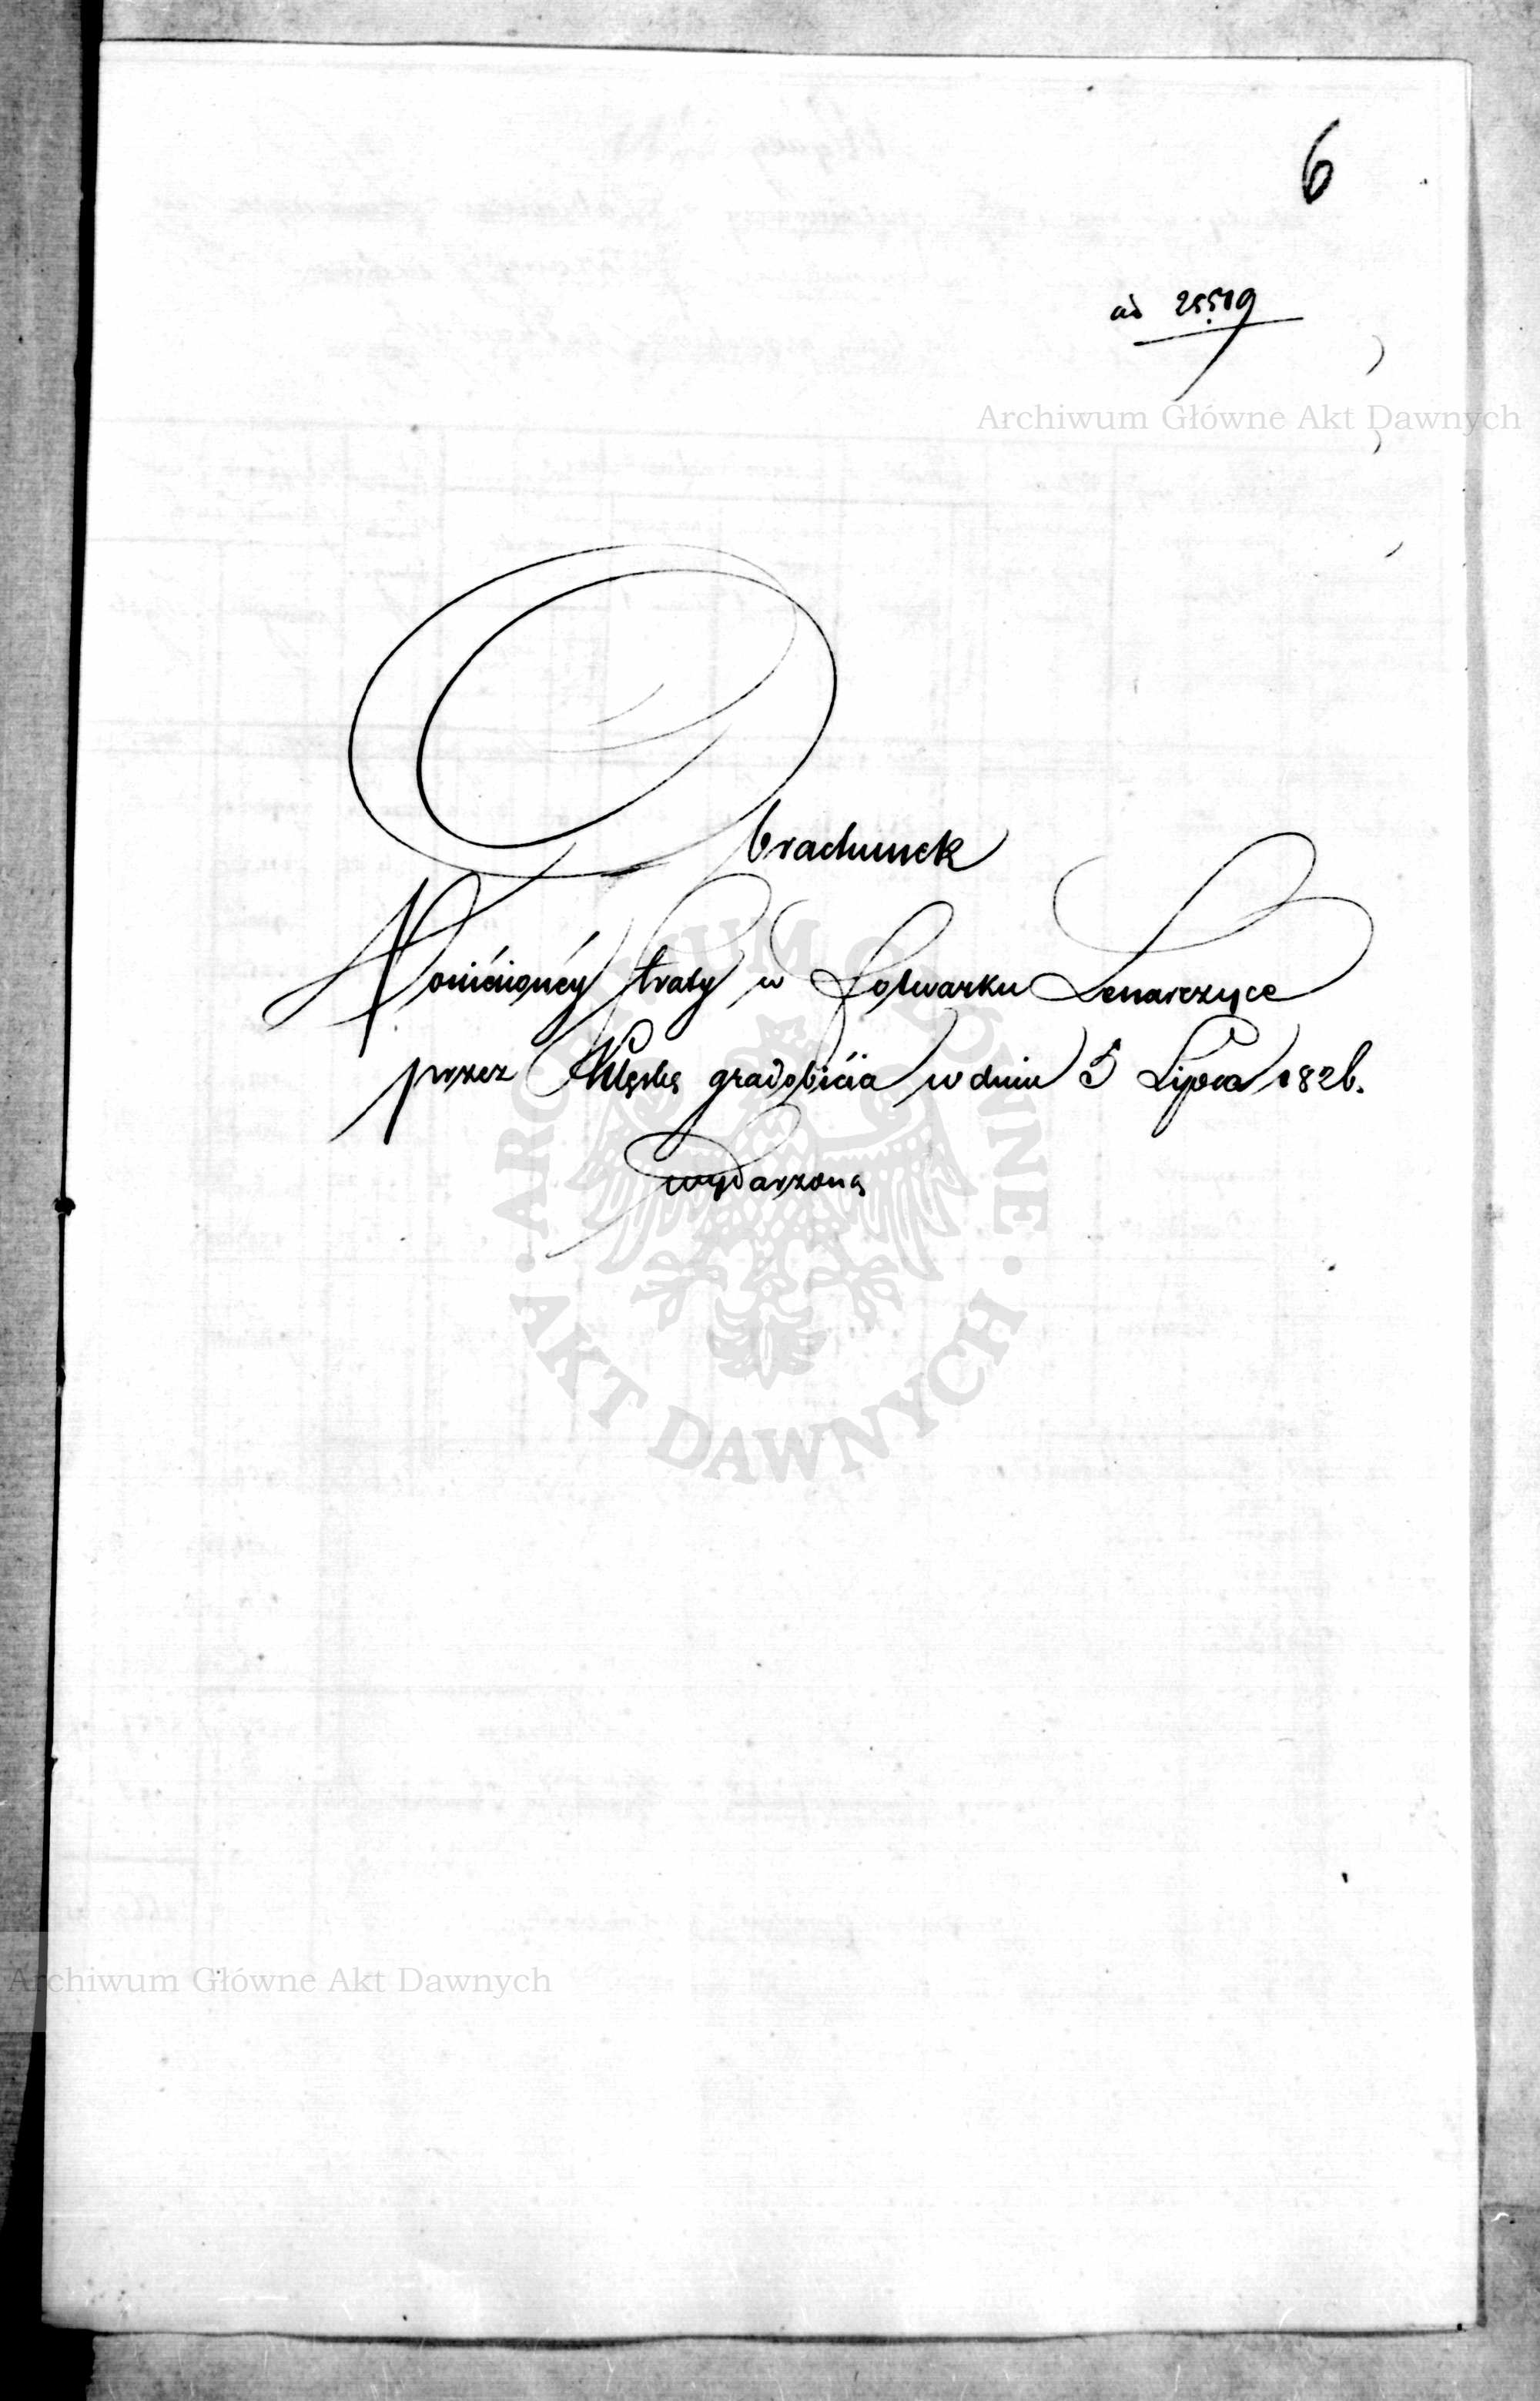 6
ad 25519
Archiwum Główne Akt Dawnych
Obrachunek
Poniesionéy straty w Folwarku Lenarczyce
przez Klęskę gradobićia w dniu 5 Lipca 1826.
wydarzoną
ARCHIWUM GŁÓWNE
AKT DAWNYCH
Archiwum Główne Akt Dawnych